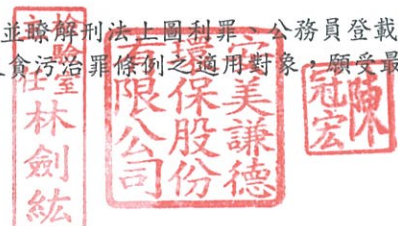 並瞭解刑法上圖利罪、公務員登載
貪污治罪條例之適用對象，願受最
檢驗室
主任
林劍紘
安美謙德
環保股份
有限公司
陳冠宏